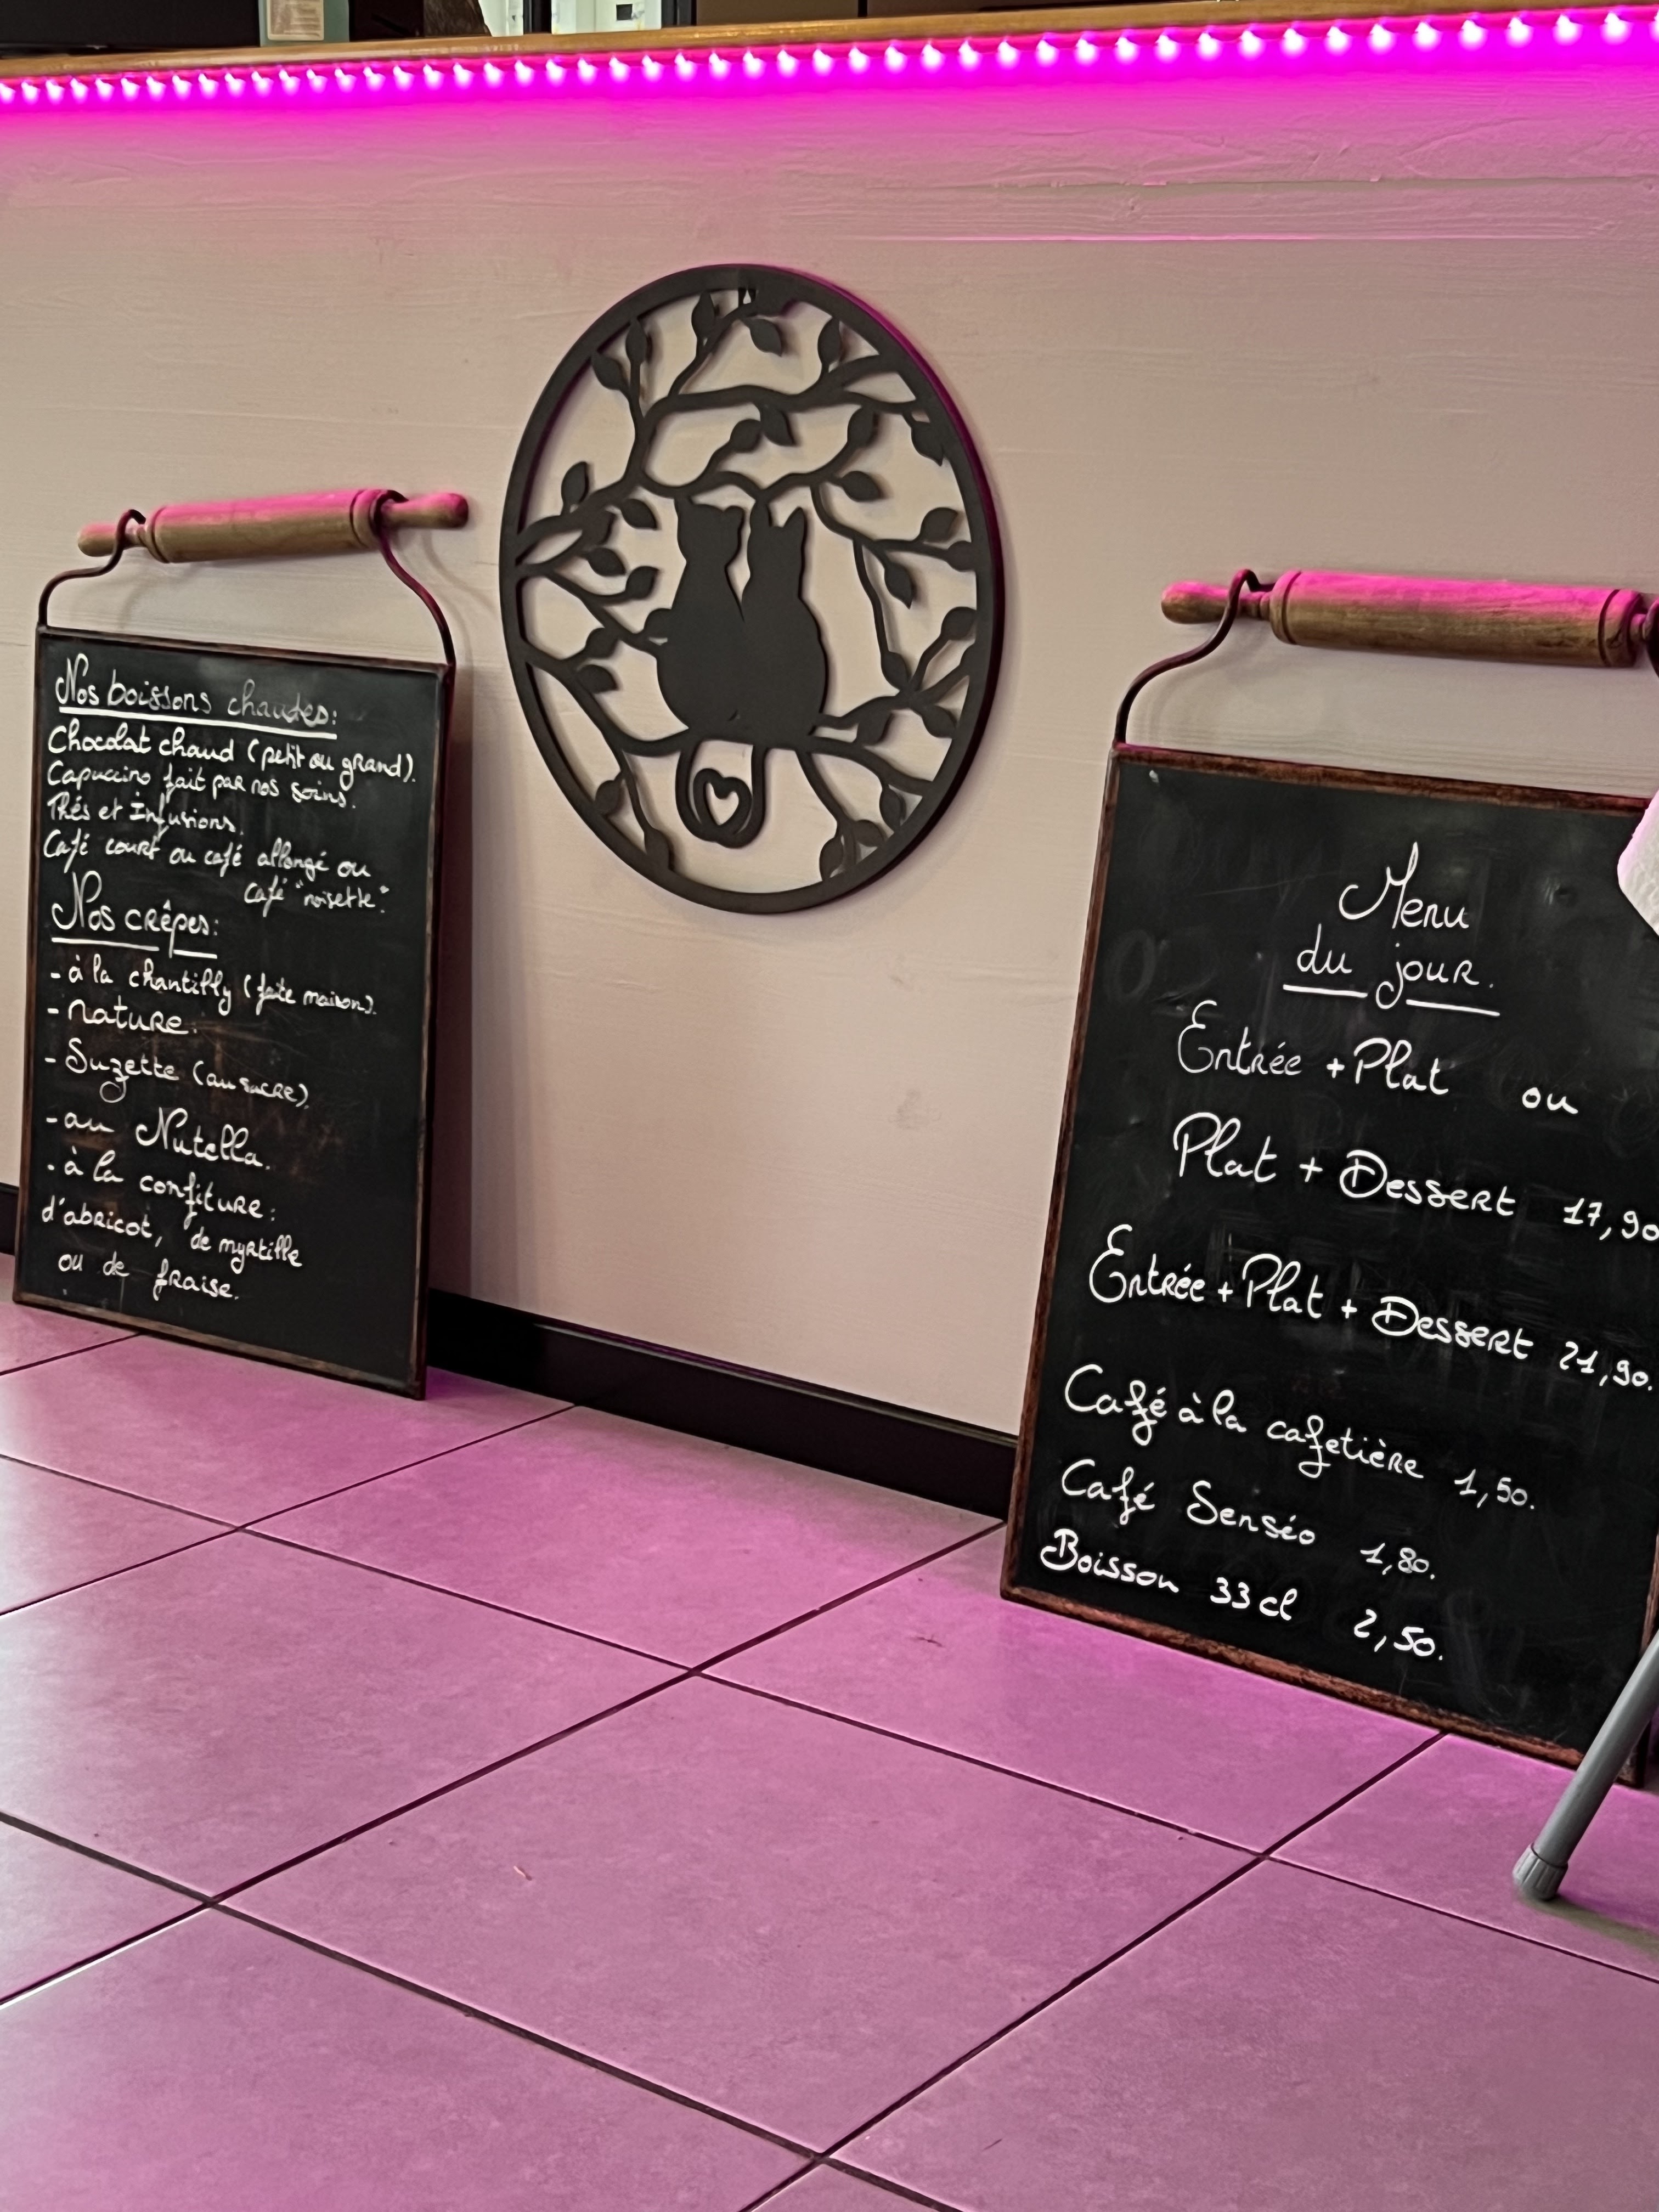 Nos boissons chaudes:
Chocolat chaud (petit ou grand).
Capuccino fait par nos soins.
Thés et Infusions.
Café court ou café allongé ou
café "noisette".
Nos crêpes:
- à la chantilly (faite maison).
- nature.
- Suzette (au sucre).
- au Nutella.
- à la confiture:
d'abricot, de myrtille
ou de fraise.
Menu
du jour.
Entrée + Plat ou
Plat + Dessert 17,90
Entrée + Plat + Dessert 21,90.
Café à la cafetière 1,50.
Café Senséo 1,80.
Boisson 33cl 2,50.